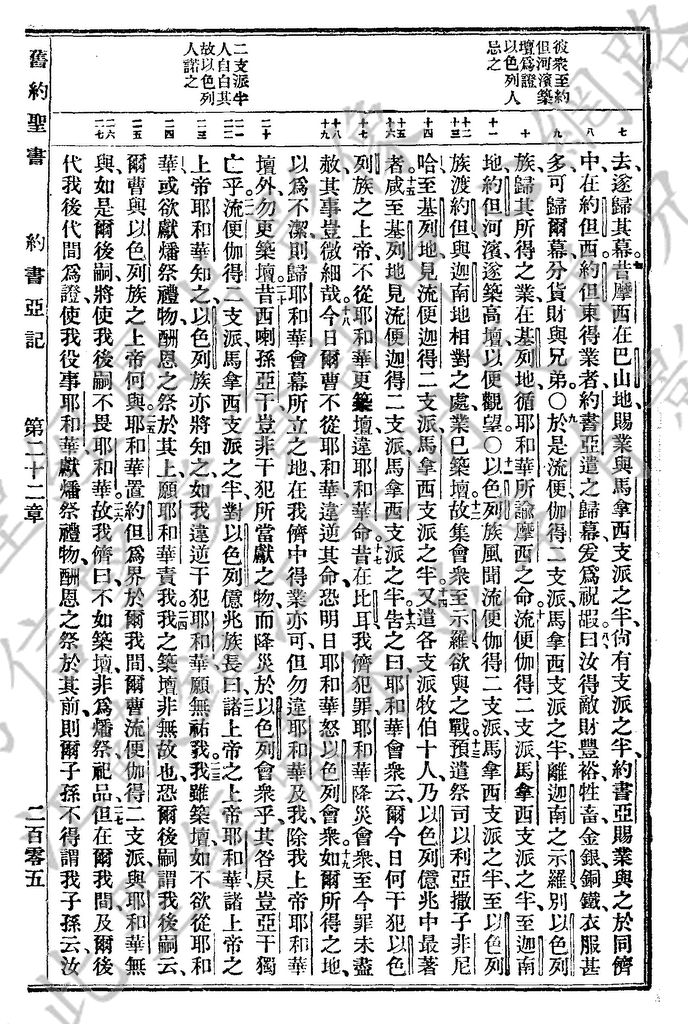 彼衆至約
但河濱築
壇爲證
以色列人
忌之
二支派半
人自白其
故以色列
人諾之
七
八
九
十
十一
十二
十三
十四
十五
十六
十七
十八
十九
二十
二一
二二
二三
二四
二五
二六
二七
去遂歸其幕昔摩西在巴山地賜業與馬拿西支派之半尙有支派之半約書亞賜業與之於同儕
中在約但西約但東得業者約書亞遣之歸幕爰爲祝嘏曰汝得敵財豐裕牲畜金銀銅鐵衣服甚
多可歸爾幕分貨財與兄弟〇於是流便伽得二支派馬拿西支派之半離迦南之示羅別以色列
族歸其所得之業在基列地循耶和華所諭摩西之命流便伽得二支派馬拿西支派之半至迦南
地約但河濱遂築高壇以便觀望〇以色列族風聞流便伽得二支派馬拿西支派之半至以色列
族渡約但與迦南地相對之處業已築壇故集會衆至示羅欲與之戰預遣祭司以利亞撒子非尼
哈至基列地見流便迦得二支派馬拿西支派之半又遣各支派牧伯十人乃以色列億兆中最著
者咸至基列地見流便迦得二支派馬拿西支派之半吿之曰耶和華會衆云爾今日何干犯以色
列族之上帝不從耶和華更築壇違耶和華命昔在比耳我儕犯罪耶和華降災會衆至今罪未盡
赦其事豈微細哉今日爾曹不從耶和華違逆其命恐明日耶和華怒以色列會衆如爾所得之地
以爲不潔則歸耶和華會幕所立之地在我儕中得業亦可但勿違耶和華及我除我上帝耶和華
壇外勿更築壇昔西喇孫亞干豈非干犯所當獻之物而降災於以色列會衆乎其咎戾豈亞干獨
亡乎流便伽得二支派馬拿西支派之半對以色列億兆族長曰諸上帝之上帝耶和華諸上帝之
上帝耶和華知之以色列族亦將知之如我違逆干犯耶和華願無祐我我雖築壇如不欲從耶和
華或欲獻燔祭禮物酬恩之祭於其上願耶和華責我我之築壇非無故也恐爾後嗣謂我後嗣云
爾曹與以色列族之上帝何與耶和華置約但爲界於爾我間爾曹流便伽得二支派與耶和華無
與如是爾後嗣將使我後嗣不畏耶和華故我儕曰不如築壇非爲燔祭祀品但在爾我間及爾後
代我後代間爲證使我役事耶和華獻燔祭禮物酬恩之祭於其前則爾子孫不得謂我子孫云汝
舊約聖書 約書亞記 第二十二章 二百零五